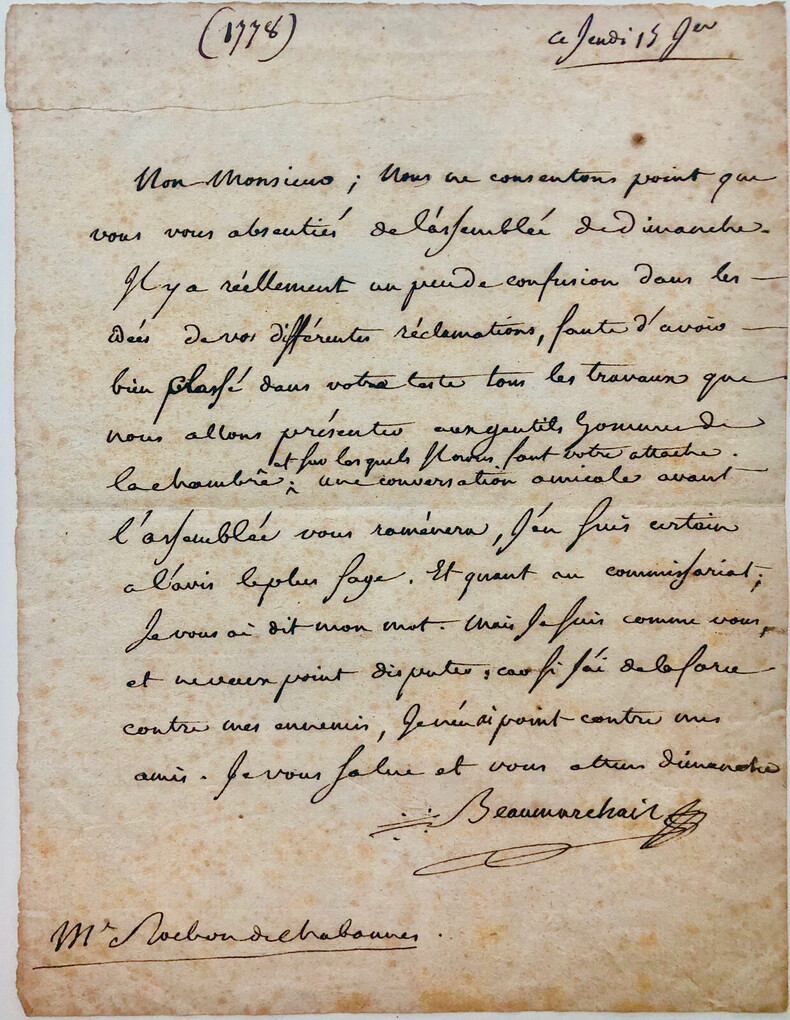 (1778)
ce Jeudi 15 Jer
Non Monsieur ; Nous ne consentons point que
vous vous absentiés de l'assemblée de Dimanche.
Il y a réellement un peu de confusion dans les
idées de vos différentes réclamations, faute d'avoir
bien classé dans votre teste tous les travaux que
nous allons présenter aux gentils hommes de
et sur lesquels
faut votre attache.
la chambre ; une conversation amicale avant
l'assemblée vous raménera, J'en suis certain
a l'avis le plus sage. Et quant au commissariat ;
Je vous ai dit mon mot. Mais Je suis comme vous,
et ne veux point disputer ; car si J'ai de la force
contre mes ennemis, Je n'en ai point contre mes
amis. Je vous salue et vous attens dimanche
Beaumarchais
Mr Rochon de Chabannes.